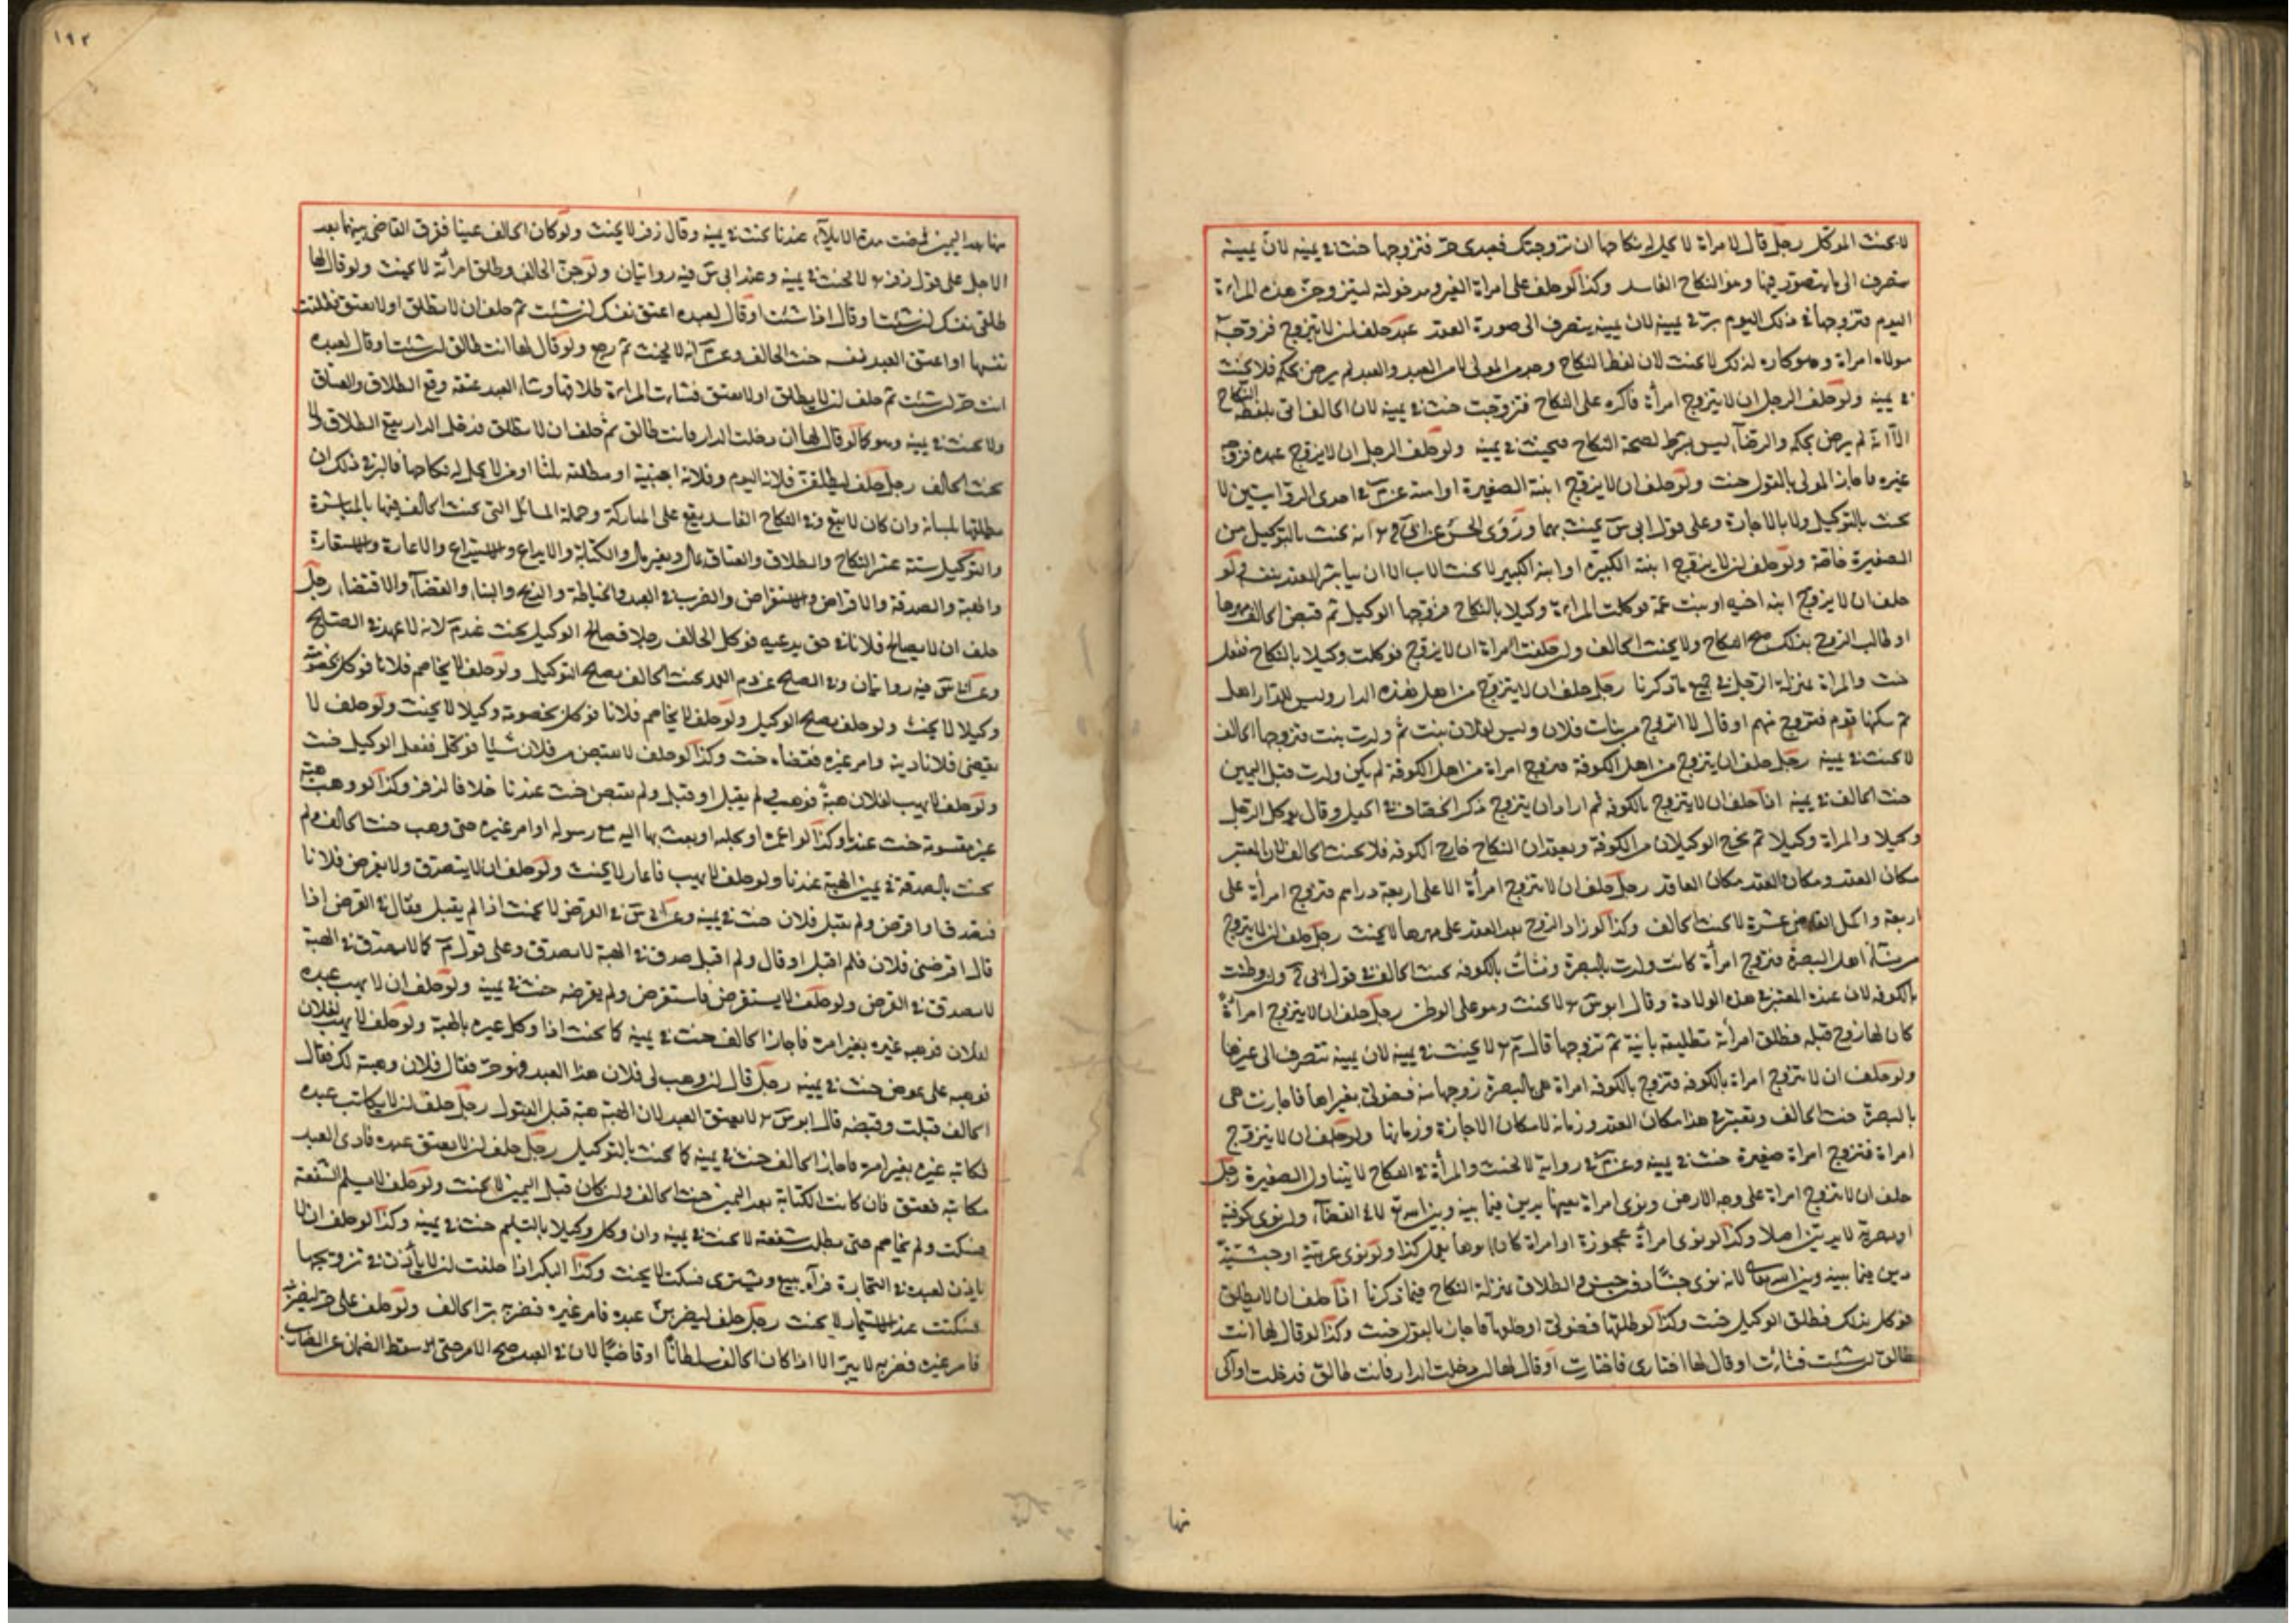 لا يحنث الموكل رجل قال لامراة لا يحل له نكاحها ان تزوجتك فعبدى حر فتزوجها حنث فى يمينه لان يمينه
ينصرف الى ما يتصور فيها وهو النكاح الفاسد وكذا لو حلف على امراة الغير ومدخولته ليتزوجن هذه المراة
اليوم فتزوجها فى ذلك اليوم بر فى يمينه لان يمينه ينصرف الى صورة العقد عبد حلف ان لا يتزوج فزوجه
مولاه امراة وهو كاره لذلك لا يحنث لان لفظ النكاح وجد من المولى لا من العبد والعبد لم يرض بحكمه فلا يحنث
فى يمينه ولو حلف الرجل ان لا يتزوج امرأة فاكره على النكاح فتزوجت حنث فى يمينه لان الحالف اتى بلفظة النكاح
الا انه لم يرض بحكمه والرضا ليس بشرط لصحة النكاح فيحنث فى يمينه ولو حلف الرجل ان لا يزوج عبده فزوجه
غيره فاجاز المولى بالقول حنث ولو حلف ان لا يزوج ابنته الصغيرة او امته عن م فى احدى الروايتين لا
يحنث بالتوكيل ولا بالاجازة وعلى قول ابى س يحنث بهما وروى الحسن عن ابى ح انه يحنث بالتوكيل من
الصغيرة خاصة ولو حلف ان لا يزوج ابنته الكبيرة او ابنه الكبير لا يحنث الاب الا ان يباشر العقد بنفسه ولو
حلف ان لا يزوج ابنه اخيه او بنت عمه فوكلت المراة وكيلا بالنكاح فزوجها الوكيل ثم قبض الحالف مهرها
او طالب الزوج بذلك صح النكاح ولا يحنث الحالف ولو حلفت المراة ان لا يتزوج فوكلت وكيلا بالنكاح ففعل
حنث والمراة بمنزلة الرجل فى جميع ما ذكرنا رجل حلف ان لا يتزوج من اهل هذه الدار وليس للدار اهل
ثم سكنها قوم فتزوج منهم او قال لا اتزوج من بنات فلان وليس لفلان بنت ثم ولدت بنت فتزوجها الحالف
لا يحنث فى يمينه رجل حلف ان يتزوج من اهل الكوفة فتزوج امراة من اهل الكوفة لم يكن ولدت قبل اليمين
حنث الحالف فى يمينه اذا حلف ان لا يتزوج بالكوفة ثم اراد ان يتزوج ذكر الخصاف فى الحيل وقال يوكل الرجل
وكيلا والمراة وكيلا ثم يخرج الوكيلان من الكوفة ويعقدان النكاح خارج الكوفة فلا يحنث الحالف لان المعتبر
مكان العقد ومكان العقد مكان العاقد رجل حلف ان لا يتزوج امرأة الا على اربعة دراهم فتزوج امرأة على
اربعة واكمل القاضى عشرة لا يحنث الحالف وكذا لو زاد الزوج بعد العقد على مهرها لا يحنث رجل حلف ان لا يتزوج
من نساء اهل البصرة فتزوج امرأة كانت ولدت بالبصرة ونشأت بالكوفه يحنث الحالف فى قول ابى ح ولو وطنت
بالكوفه لان عنده المعتبر فى هذه الولادة وقال ابو س لا يحنث وهو على الوطن رجل حلف ان لا يتزوج امرأة
كان لها زوج قبله فطلق امرأته تطليقة بائنة ثم تزوجها قال م لا يحنث فى يمينه لان يمينه تنصرف الى غيرها
ولو حلف ان لا يتزوج امراة بالكوفه فتزوج بالكوفه امراة هى بالبصرة زوجها منه فضولى بغير امرها فاجازت هى
بالبصرة حنث الحالف ويعتبر فى هذا مكان العقد وزمانه لا مكان الاجازة وزمانها ولو حلف ان لا يتزوج
امراة فتزوج امراة صغيرة حنث فى يمينه وعن م فى رواية لا يحنث والمرأة فى النكاح لا يتناول الصغيرة رجل
حلف ان لا يتزوج امراة على وجه الارض ونوى امراة بعينها يدين فيما بينه وبين الله تع لا فى القضاء ولو نوى كوفية
او بصرية لا يدين اصلا وكذا لو نوى امرأة عجوزة او امراة كان ابوها يعمل كذا ولو نوى عربية او حبشية
دين فيما بينه وبين الله تعالى لانه نوى جنسا دون جنس والطلاق بمنزلة النكاح فيما ذكرنا اذا حلف ان لا يطلق
فوكل بذلك فطلق الوكيل حنث وكذا لو طلقها فضولى او خلعها فاجاز بالقول حنث وكذا لو قال لها انت
طالق ان شئت فشاءت او قال لها اختارى فاختارت او قال لها ان دخلت الدار فانت طالق فدخلت او آلى
نها
١٩٢
منها بعد اليمين فمضت مدة الايلاء عندنا يحنث فى يمينه وقال زفر لا يحنث ولو كان الحالف عنينا ففرق القاضى بينهما بعد
الاجل على قول زفر لا يحنث فى يمينه وعند ابى س فيه روايتان ولو جن الحالف وطلق امرأته لا يحنث ولو قال لها
طلقى نفسك ان شئت او قال اذا شئت او قال لعبده اعتق نفسك ان شئت ثم حلف ان لا يطلق او لا يعتق فطلقت
نفسها او اعتق العبد نفسه حنث الحالف وعن م انه لا يحنث ثم رجع ولو قال لها انت طالق ان شئت او قال لعبده
انت حر ان شئت ثم حلف ان لا يطلق او لا يعتق فشاءت المراة طلاقها وشاء العبد عتقه وقع الطلاق والعتاق
ولا يحنث فى يمينه وهو كما لو قال لها ان دخلت الدار فانت طالق ثم حلف ان لا يطلق فدخل الدار يقع الطلاق لا
يحنث الحالف رجل حلف ليطلقن فلانا اليوم وفلانة اجنبية او مطلقته ثلثا او من لا يحل له نكاحها فالبر فى ذلك ان
يطلقها بلسانه وان كان لا يقع وفى النكاح الفاسد يقع على المتاركة وجملة المسائل التى يحنث الحالف فيها بالمباشرة
والتوكيل ستة عشر النكاح والطلاق والعتاق بمال وبغير مال والكتابة والايداع والاستيداع والاعارة والاستعارة
والهبة والصدقة والاقراض والاستقراض والضرب فى العبد والخياطة والذبح والبناء والقضاء والاقتضاء رجل
حلف ان لا يصالح فلانا فى حق يدعيه فوكل الحالف رجلا فصالح الوكيل يحنث عند م لانه لا عهدة فى الصلح
وعن ابى س فيه روايتان وفى الصلح عن دم العمد يحنث الحالف بصلح التوكيل ولو حلف لا يخاصم فلانا فوكل بخصومته
وكيلا لا يحنث ولو حلف يصلح الوكيل ولو حلف لا يخاصم فلانا فوكل بخصومته وكيلا لا يحنث ولو حلف لا
يقضى فلانا دينه وامر غيره فقضاه حنث وكذا لو حلف لا يقبض من فلان شيئا فوكل ففعل الوكيل حنث
ولو حلف لا يهب لفلان هبة فوهب ولم يقبل او قبل ولم يقبض حنث عندنا خلافا لزفر وكذا لو وهب هبة
غير مقسومة حنث عندنا وكذا لو اعمره او نحله او بعث بها اليه مع رسوله او امر غيره حتى وهب حنث الحالف ولم
يحنث بالصدقة فى يمين الهبة عندنا ولو حلف لا يهب فاعار لا يحنث ولو حلف ان لا يتصدق ولا يقرض فلانا
فتصدق او اقرض ولم يقبل فلان حنث فى يمينه وعن ابى س فى القرض لا يحنث اذا لم يقبل وقال فى القرض اذا
قال اقرضنى فلان فلم اقبل او قال ولم اقبل صدق فى الهبة لا يصدق وعلى قول م كما لا يصدق فى الهبة
لا يصدق فى القرض ولو حلف لا يستقرض فاستقرض ولم يقرضه حنث فى يمينه ولو حلف ان لا يهب عبده
لفلان فوهبه غيره بغير امره فاجاز الحالف حنث فى يمينه كما يحنث اذا وكل غيره بالهبة ولو حلف لا يهب لفلان
فوهبه على عوض حنث فى يمينه رجل قال ان وهب لى فلان هذا العبد فهو حر فقال فلان وهبته لك فقال
الحالف قبلت وقبضه قال ابو س لا يعتق العبد لان الهبة هبة قبل القبول رجل حلف ان لا يكاتب عبده
فكاتبه غيره بغير امره فاجاز الحالف حنث فى يمينه كما يحنث بالتوكيل رجل حلف ان لا يعتق عبده فادى العبد
مكاتبه فعتق فان كانت الكتابة بعد اليمين حنث الحالف وان كان قبل اليمين لا يحنث ولو حلف لا يسلم الشفعة
فسكت ولم يخاصم حتى بطلت شفعته لا يحنث فى يمينه وان وكل وكيلا بالتسليم حنث فى يمينه وكذا لو حلف ان لا
ياذن لعبده فى التجارة فرآه يبيع ويشترى فسكت لا يحنث وكذا البكر اذا حلفت ان لا يأذن فى تزويجها
فسكتت عند الاستيمار لا يحنث رجل حلف ليضربن عبده فامر غيره فضربه بر الحالف ولو حلف على حر ليضربنه
فامر غيره فضربه لا يبر الا اذا كان الحالف سلطانا او قاضيا لان فى العبد صح الامر حتى سقط الضمان عن الضارب